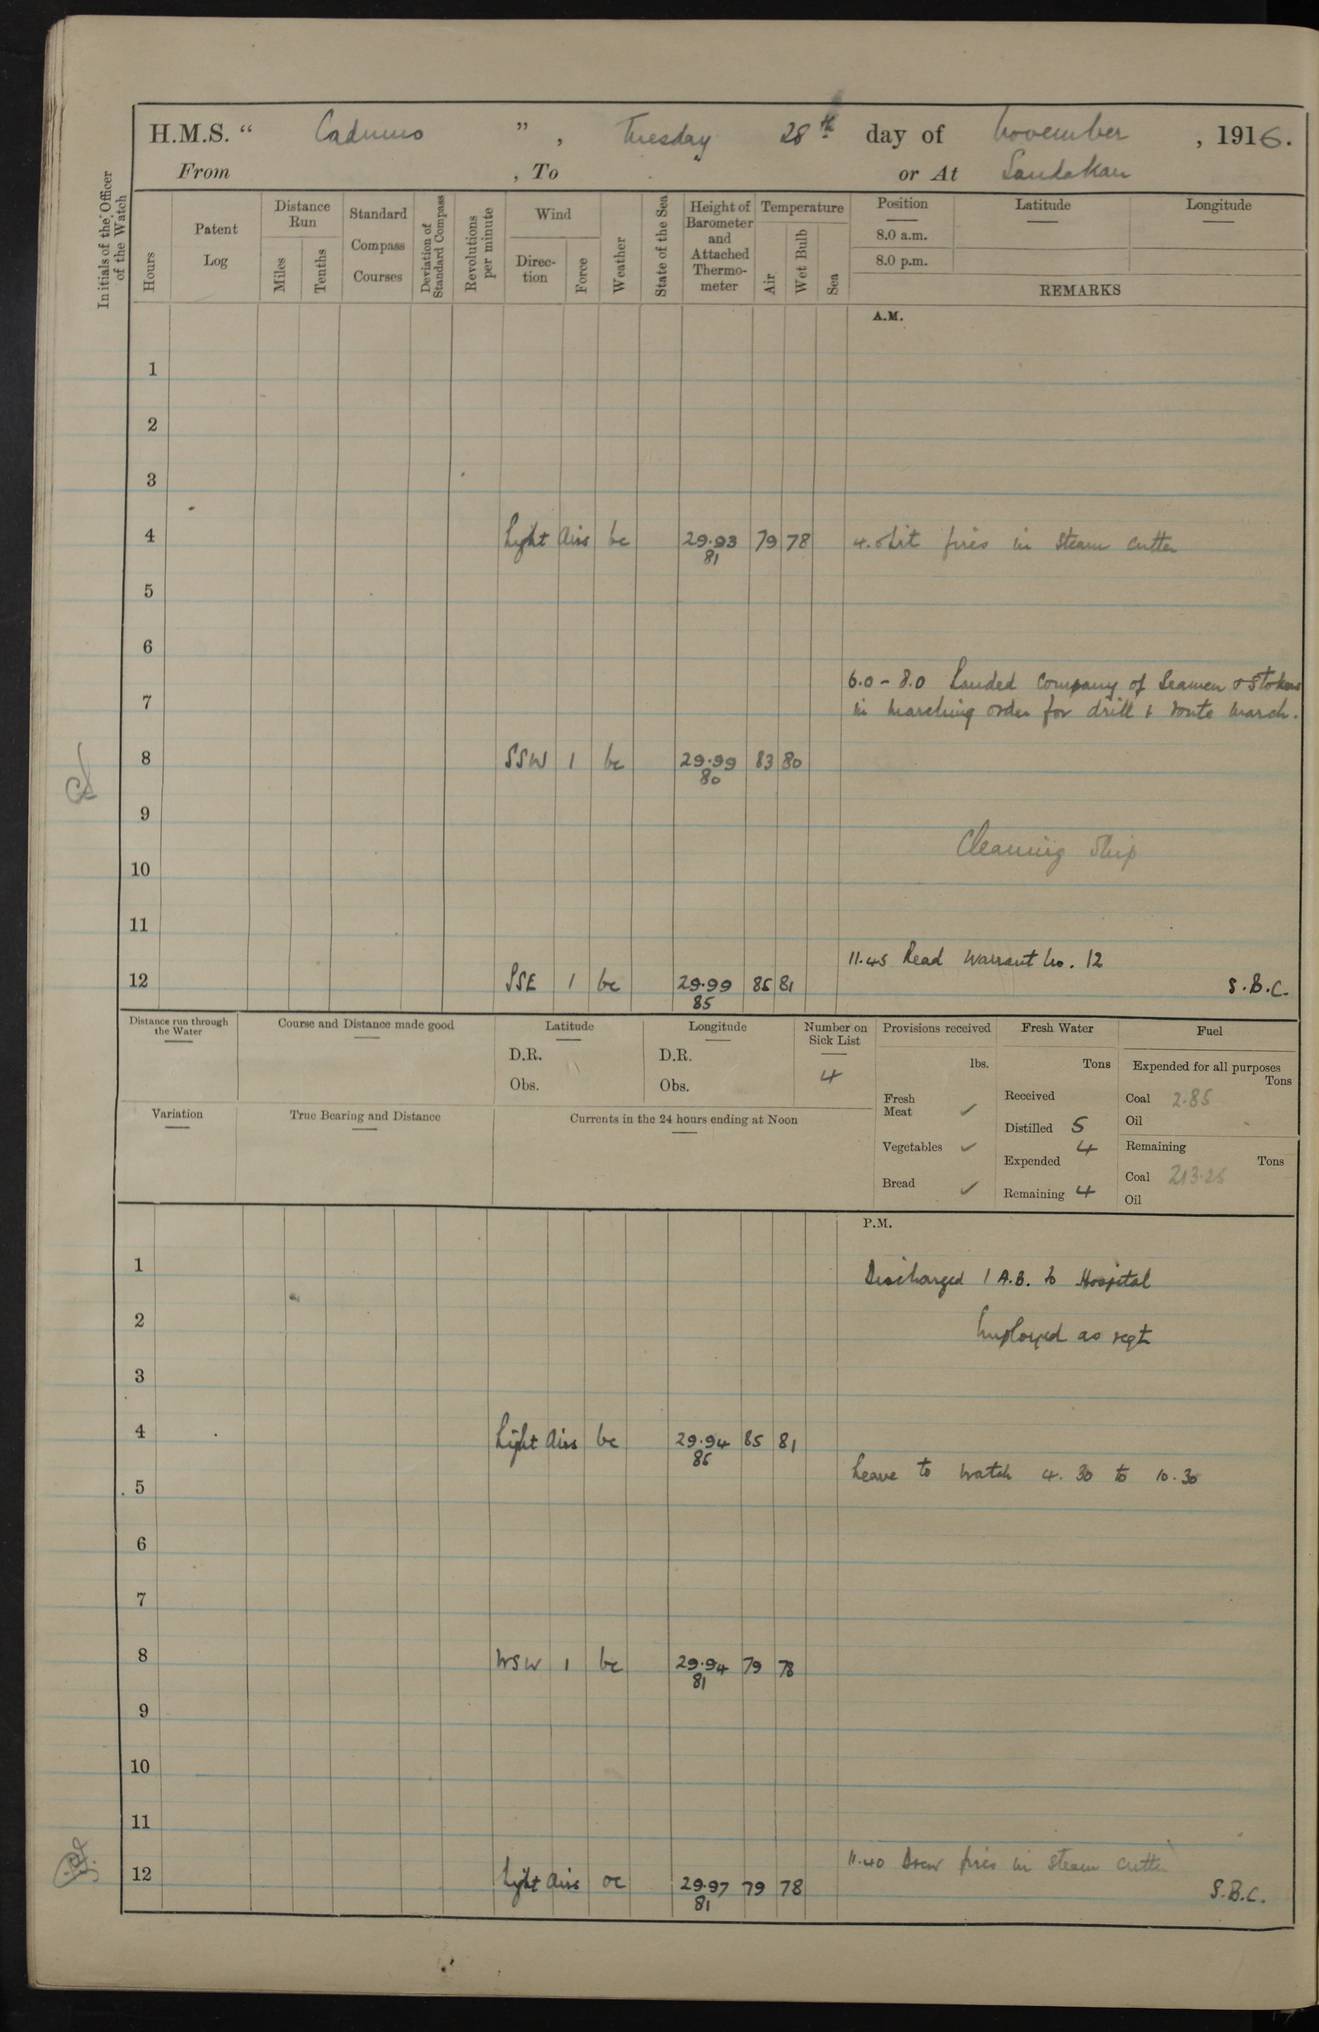 H.M.S. “ Cadmus ” , Tuesday 28th day of November , 1916.
From , To or At Sandakan
Initials of the Officer of the Watch
Hours
Patent Log
Distance Run
Miles
Tenths
Standard Compass Courses
Deviation of Standard Compass
Revolutions per minute
Wind
Direction
Force
Weather
State of the Sea
Height of Barometer and Attached Thermometer
Temperature
Air
Wet Bulb
Sea
Position Latitude Longitude
8.0 a.m.
8.0 p.m.
REMARKS
A.M.
1
2
3
4 Light Airs bc 29.93 79 78 4.0 Lit fires in steam cutter
81
5
6
6.0 - 8.0 Landed Company of Seamen & Stokers
7 in marching order for drill & route march.
8 SSW 1 bc 29.99 83 80
80
9
Cleaning Ship
10
11
11.45 Read Warrant No. 12
12 SSE 1 bc 29.99 85 81 S.B.C.
85
Distance run through the Water
Course and Distance made good
Latitude
D.R.
Obs.
Longitude
D.R.
Obs.
Number on Sick List
4
Variation
True Bearing and Distance
Currents in the 24 hours ending at Noon
Provisions received
lbs.
Fresh Meat ✓
Vegetables ✓
Bread ✓
Fresh Water
Tons
Received
Distilled 5
Expended 4
Remaining 4
Fuel
Expended for all purposes
Tons
Coal 2.85
Oil
Remaining
Tons
Coal 213.25
Oil
P.M.
1 Discharged 1 A.B. to Hospital
2 Employed as reqt
3
4 Light Airs bc 29.94 85 81
86
Leave to watch 4.30 to 10.30
5
6
7
8 WSW 1 bc 29.94 79 78
81
9
10
11
11.40 Drew fires in steam cutter
12 Light Airs oc 29.97 79 78
81
S.B.C.